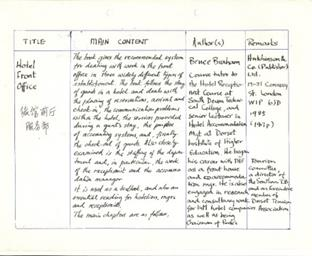 TITLE
MAIN CONTENT
Author(s)
Remarks
Hotel
Front
Office
旅馆前厅
服务部
The book gives the recommended system
for dealing with work in the front
office in three widely different types of
establishment. The book follows the stay
of guests in a hotel and deals with
the planning of reservations, arrival and
check-in, the communication problems
within the hotel, the services provided
during a guest's stay, the purpose
of accounting systems and, finally,
the check-out of guests. Also closely
examined is the staffing of the depart
ment and, in particular, the work
of the receptionist and the accommo
dation manager.
It is used as a textbook, and also an
essential reading for hoteliers, mgrs
and receptionists.
The main chapters are as follows,
Bruce Braham,
Course tutor to
the Hotel Reception
ist Course at
South Devon Technical
College, and
senior lecturer in
Hotel Accommodation
Mgt at Dorset
Institute of Higher
Education. He began
his career with THF
as a front house
and
mgr. He is also
engaged in research
and consultancy work
for
hotel companies
as well as being
Chairman of
Hutchinson &
Co. (Publishers)
Ltd.
17-21 Conway
St. London
W1P 6JD
1985
Tourism
committee,
a director of
the Southern T.B.
and an executive
member of
Dorset Tourism
Association.